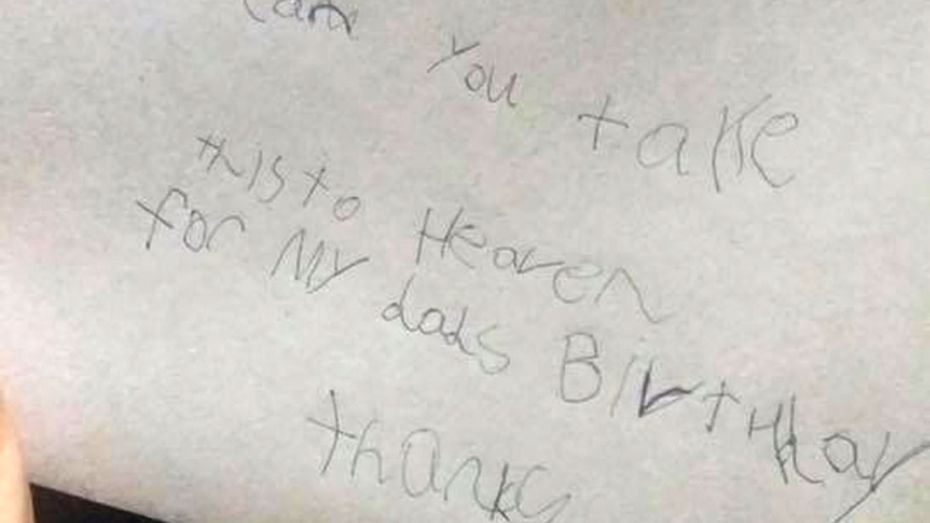 Can
you take
this to Heaven
for My dads Birthday
thanks